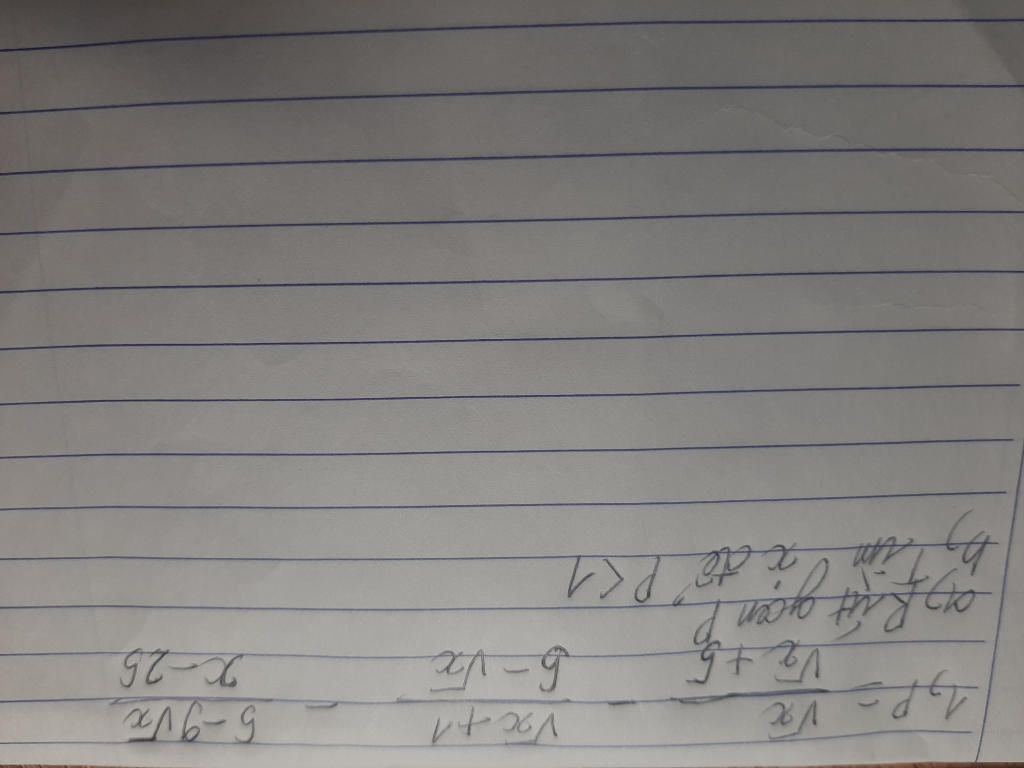 1, P = √x / √x + 5 - √x + 1 / 5 - √x - 5 - 9√x / x - 25
a, Rút gọn P
b, Tìm x để P < 1